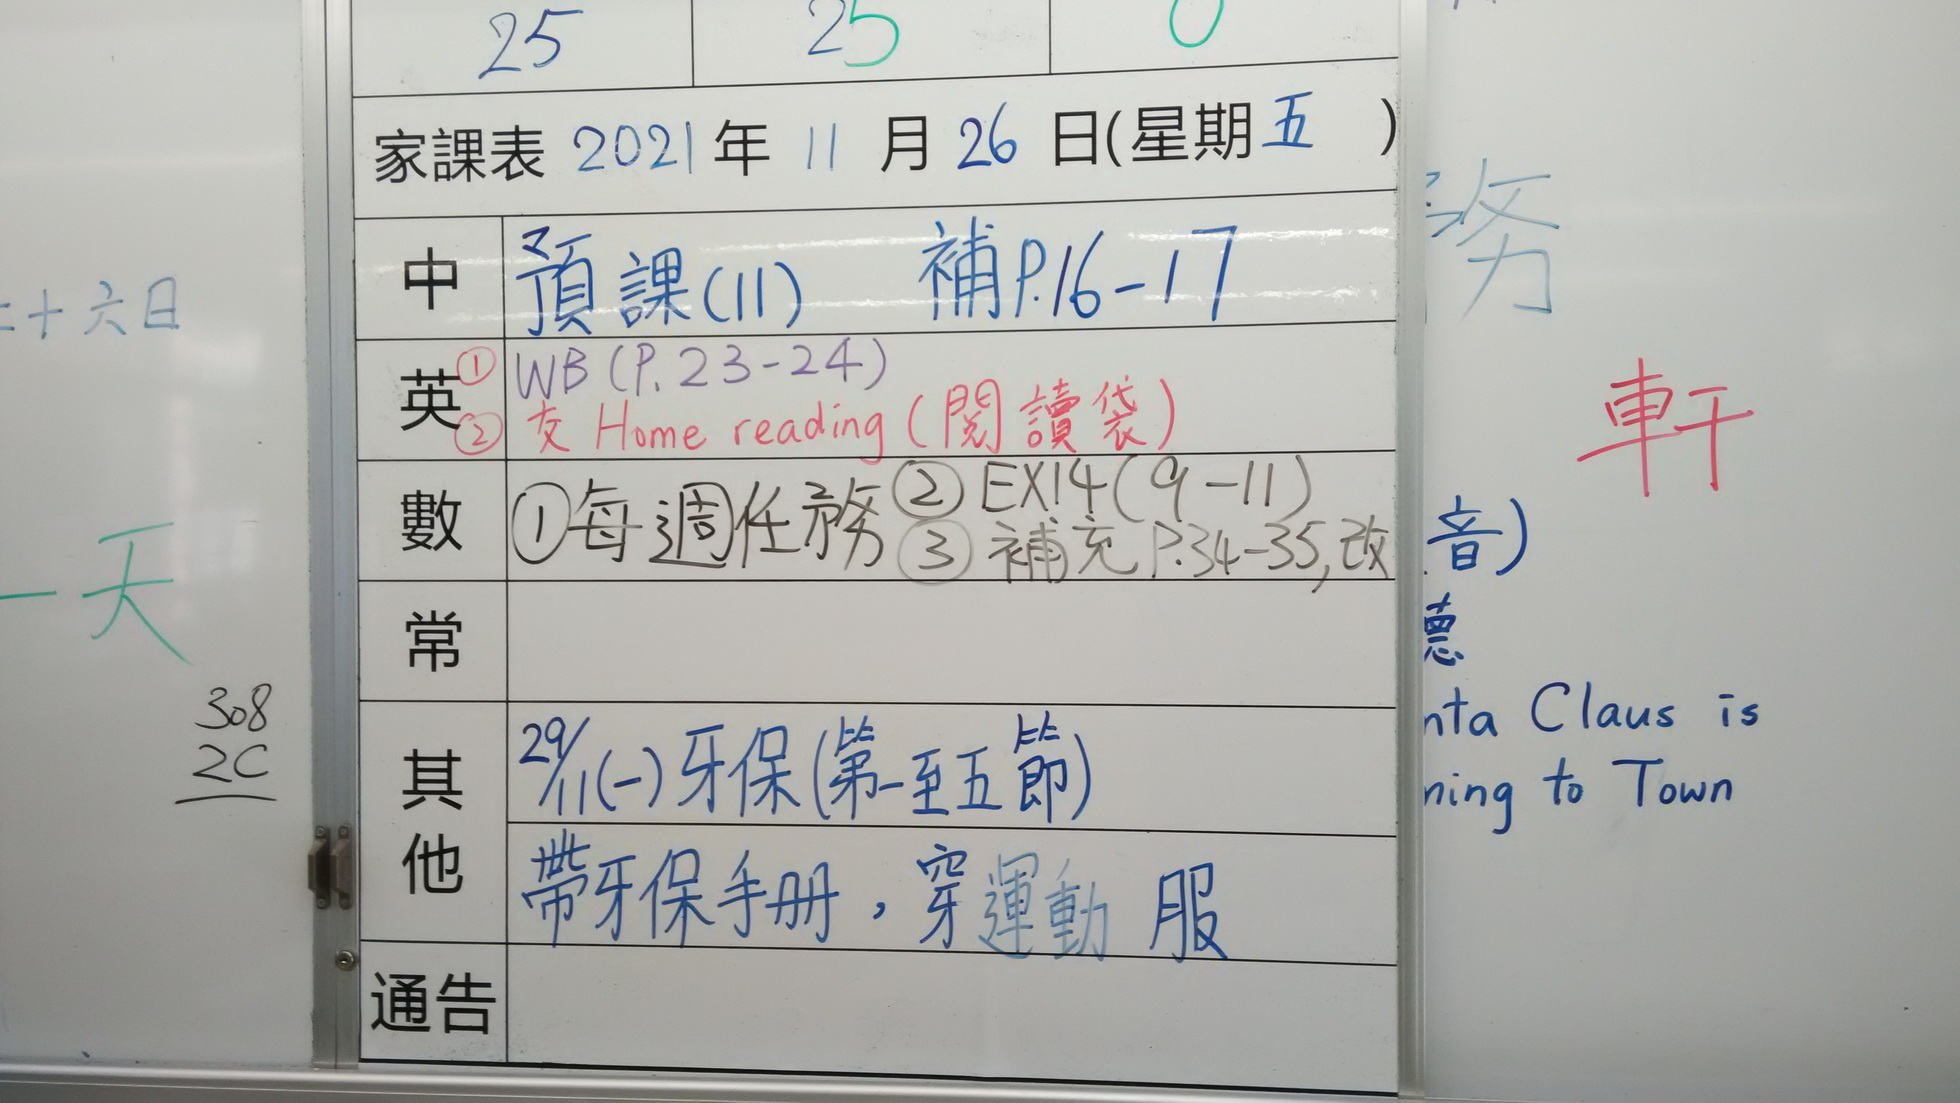 25 25 0
家課表 2021年 11月 26日(星期五 )
中 預課(11) 補P.16-17
英 ① WB (P.23-24)
② 交 Home reading (閱讀袋)
數 ①每週任務 ② EX14(9-11)
③ 補充 P.34-35,改
常
其他 29/11(一)牙保(第一至五節)
帶牙保手冊，穿運動服
通告
二十六日
一天
308
2C
務
軒
音)
nta Claus is
ning to Town